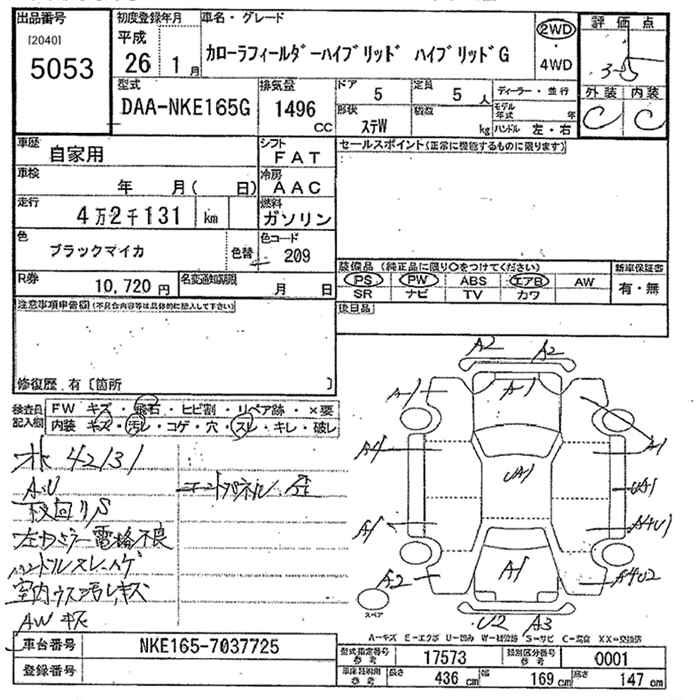 出品番号 初度登録年月 車名・グレード 評価点
[2040] 平成 カローラフィールダーハイブリッド ハイブリッドG 2WD
5053 26 1月 ・4WD 3-5
型式 排気量 ドア 5 定員 5人 ディーラー・並行 外装 内装
DAA-NKE165G 1496 CC 形状 ステW 積載 kg モデル年式 年 C C
ハンドル 左・右
車歴 自家用 シフト FAT セールスポイント(正常に機能するものに限ります)
車検 年 月( 日) 冷房 AAC
走行 4万2千131 km 燃料 ガソリン
色 ブラックマイカ 色替 色コード 209
装備品(純正品に限り○をつけてください) 新車保証書
R券 10,720円 名変通知期限 月 日 PS PW ABS エアB AW 有・無
SR ナビ TV カワ
注意事項申告欄(不具合内容等は具体的に記入して下さい) 後日品
修復歴 有〔箇所 〕
検査員記入欄 FW キズ・飛石・ヒビ割・リペア跡・×要
内装 キズ・汚レ・コゲ・穴・スレ・キレ・破レ
A2 A2
A1 A1
42131
A1 A1
UA1 UA1
A1 A4U1
室内
A2 A1 A4U2
AW キズ
スペア U2 A3
A-キズ E-エクボ U-凹み W-補修跡 S-サビ C-腐食 XX=交換済
車台番号 NKE165-7037725
型式指定番号 参考 17573 類別区分番号 参考 0001
登録番号
車庫証明用 参考 長さ 436 cm 幅 169 cm 高さ 147 cm